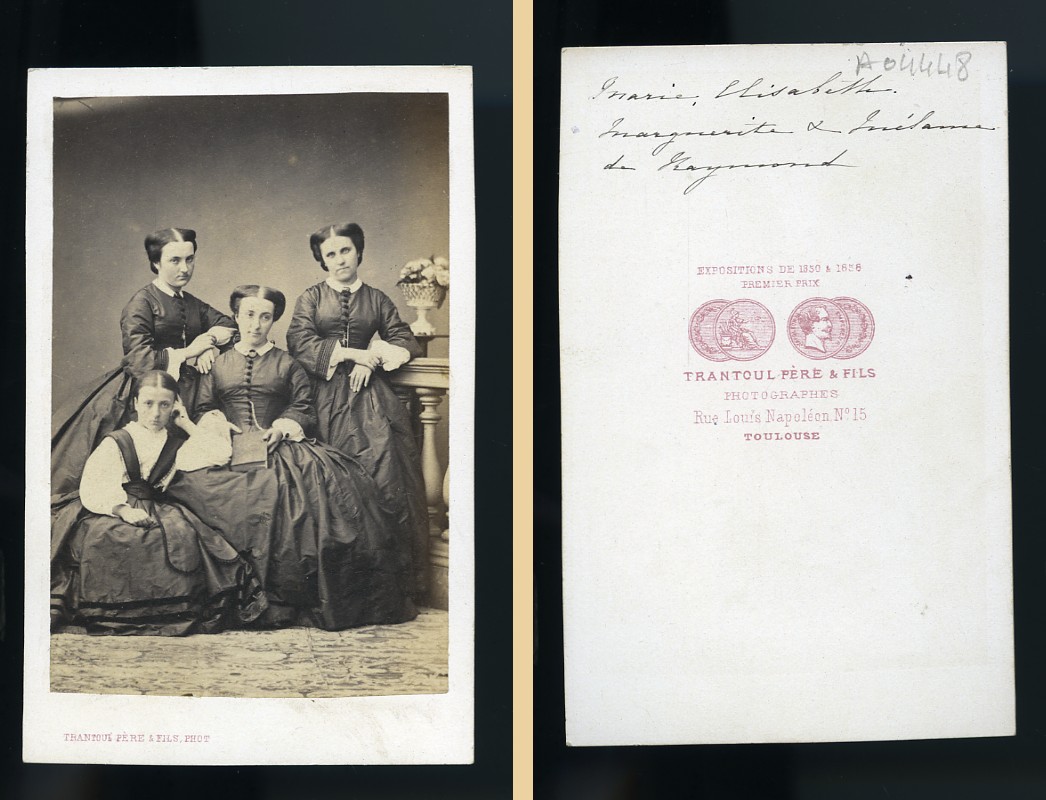 TRANTOUL PÈRE & FILS, PHOT
A04448
Marie, Elisabeth.
Marguerite & Mélanie
de Raymond
EXPOSITIONS DE 1850 & 1858
PREMIER PRIX
TRANTOUL PÈRE & FILS
PHOTOGRAPHES
Rue Louis Napoléon. Nº 15
TOULOUSE